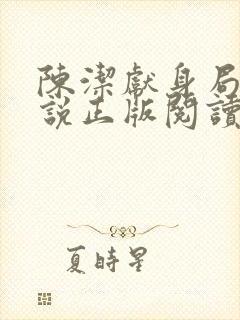 陳潔獻身局
説正版閱讀
夏時星